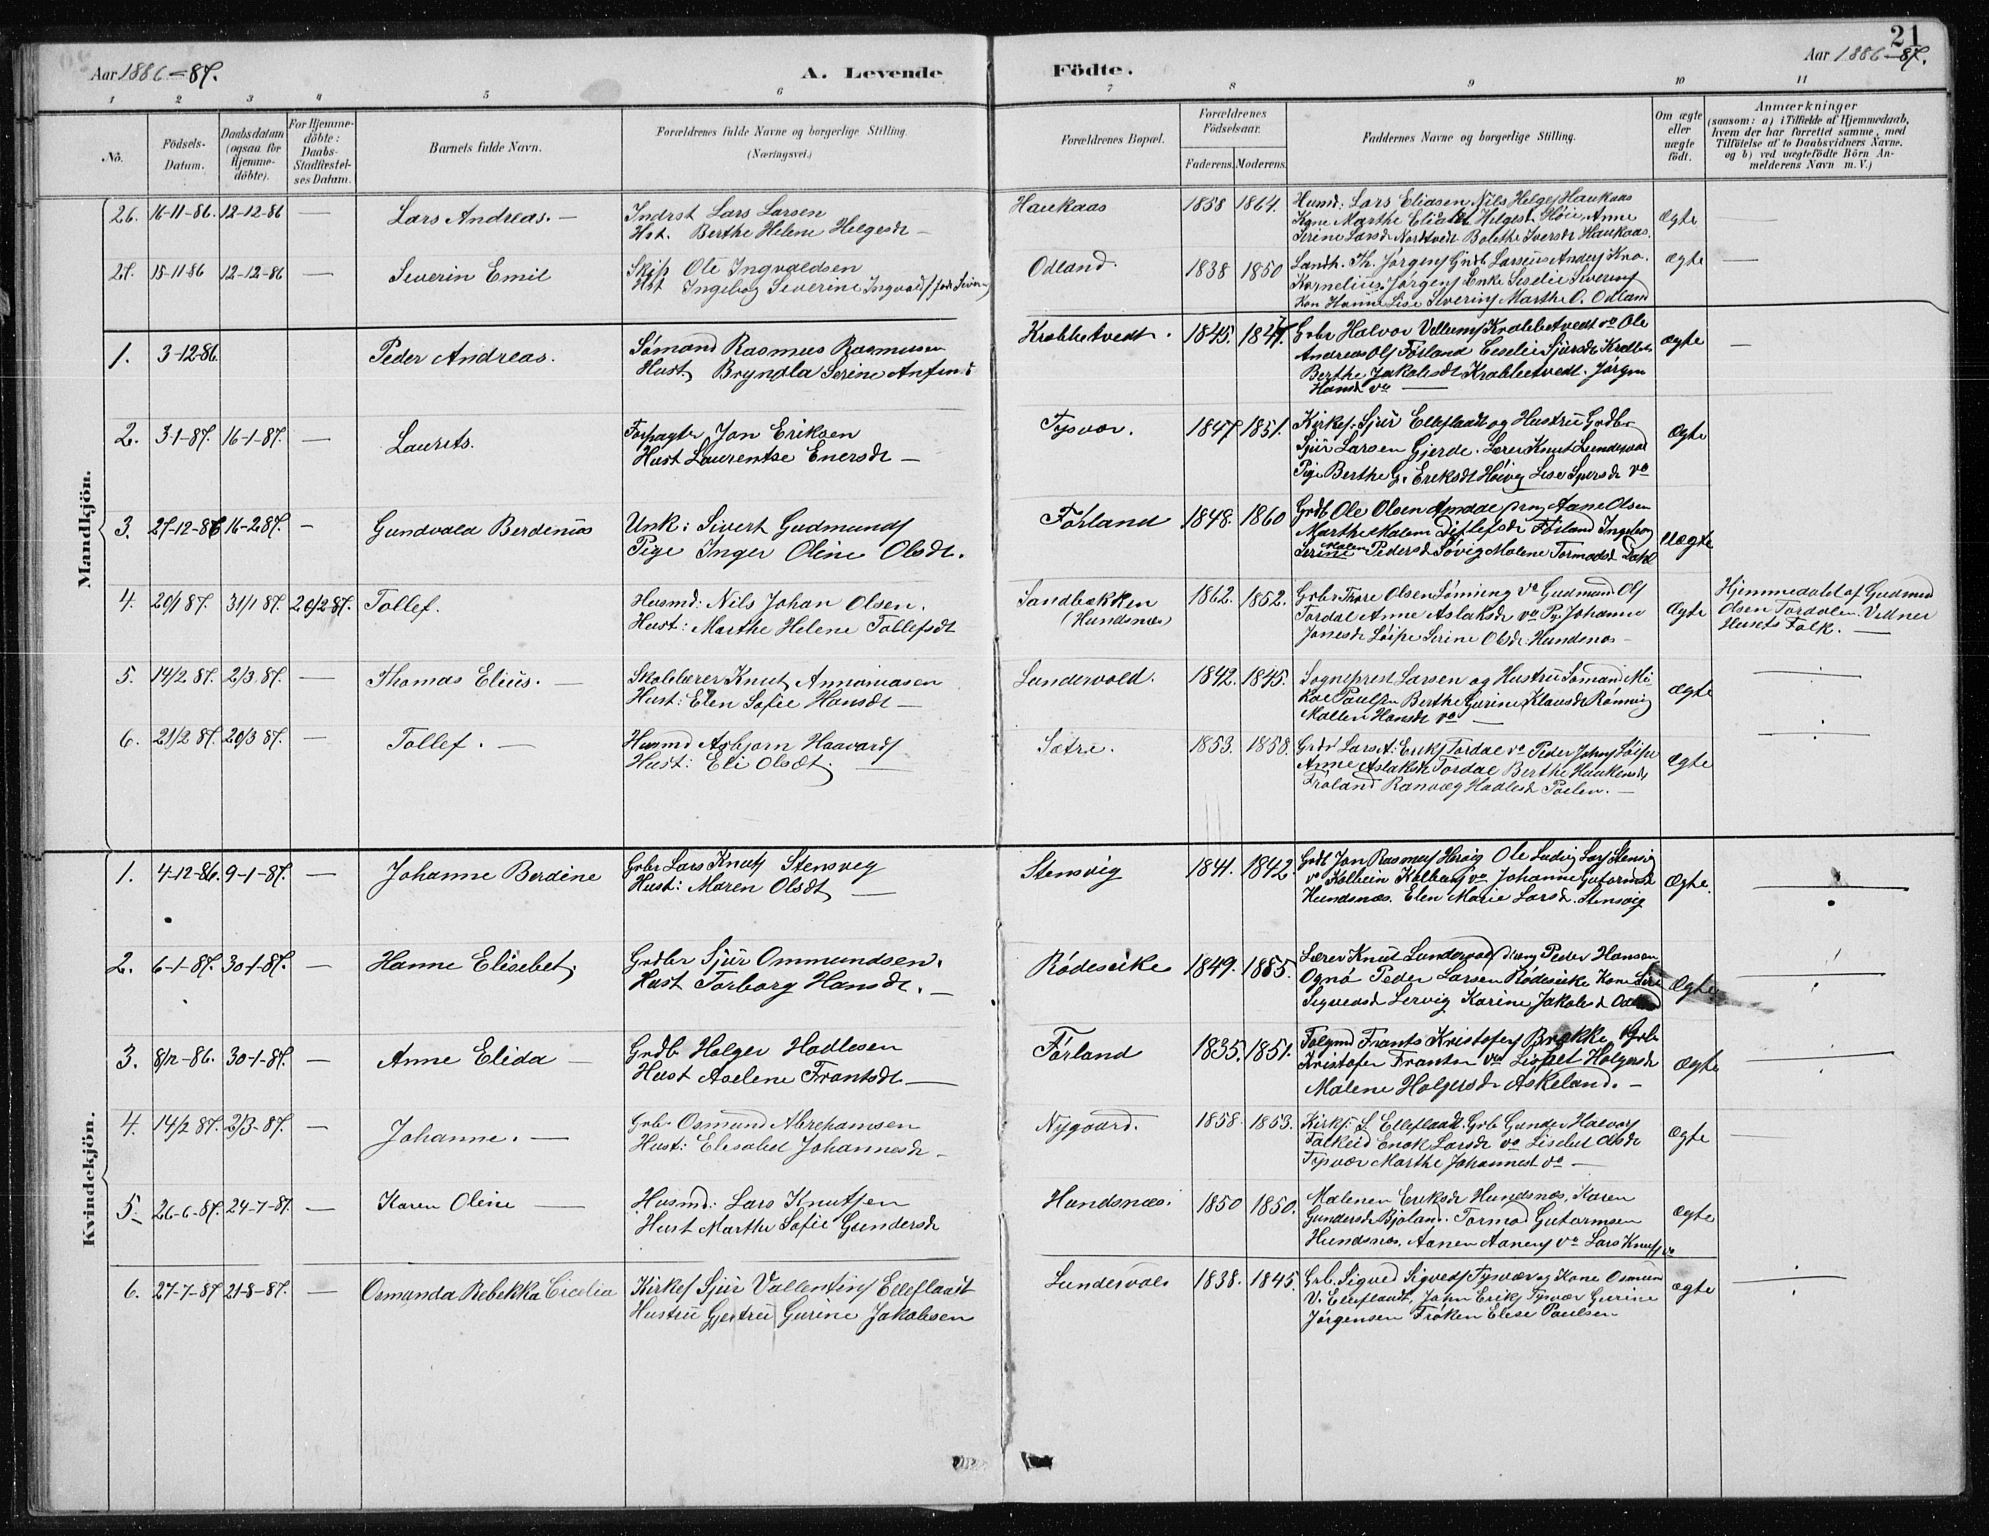 21
Aar 1886-87.
A. Levende
Födte.
Aar 1886-87.
1 2 3 4 5 6 7 8 9 10 11
No.
Födsels-Datum.
Daabsdatum (ogsaa for Hjemme-döbte).
For Hjemme-döbte: Daabs-Stadfæstel-ses Datum.
Barnets fulde Navn.
Forældrenes fulde Navne og borgerlige Stilling.
(Næringsvei.)
Forældrenes Bopæl.
Forældrenes Födselsaar.
Faderens. Moderens.
Faddernes Navne og borgerlige Stilling.
Om ægte eller uægte födt.
Anmærkninger
(saasom: a) i Tilfælde af Hjemmedaab, hvem der har forrettet samme, med Tilföielse af to Daabsvidners Navne. og b) ved uægtefödte Börn An-melderens Navn m. V.)
Mandkjön.
26. 16-11-86. 12-12-86 — Lars Andreas. —
Indrst Lars Larsen
Hst. Berthe Helene Helgesdt —
Haukaas 1858 1864.
Husmd. Lars Eliasen Nils Helges Haukaas
Kone Marthe Eliasdt Helgesdt Anne
Serine Larsd Nordtvedt Bolethe Iversdt Haukaas.
Ægte —
27. 15-11-86 12-12-86 — Severin Emil
Skips Ole Ingvaldsen
Hst Ingebog Severine Ingvads
Odland. 1838 1850
Landh. Th. Jørgens Grdb Larseus Anders
Kornelius Jørgens Enke Seselie Severins
Kon Hanne Lise Severins Marthe O. Odland
Ægte —
1. 3-12-86. Peder Andreas.
Sømand Rasmus Rasmussen
Hust. Bryndla Serine Anfins
Krabbetvedt. 1845. 1847.
Grbr Halvor Vellums Krabbetvedt vo Ole
Andreas Ols Førland Ceselie Sjursdt Krabbet
Berthe Jakobsdt Krabbetvedt. Jørgen
Hansdt vo —
Ægte —
2. 3-1-87. 16-1-87. — Laurits.
Forpagter Jon Eriksen
Hust Laurentse Enersdt —
Tysvær. 1847 1851.
Kirkes. Sjur Elleflaadt og Hustru Grdbr
Sjur Larsen Gjerde. Lærer Knut Lundervold
Pige Berthe G. Eriksdt Høivig Lise Iversdt vo
Ægte
3. 27-12-86 16-2-87. — Gundvald Berdenius
Unk: Sivert Gudmunds
Pige Inger Oline Olsdt.
Førland 1848. 1860
Grdb Ole Olsen Amdal Aane Olsen
Marthe Malene Ditlefsdt Førland Ingebor
Serine Malene Pedersd Søvig Malene Tormodsd Dahl
Uægte
4. 20/1 87. 31/1 87. 20/2-87. Tollef.
Husmd: Nils Johan Olsen.
Hust: Marthe Helene Tollefsdt
Sandbekken
(Hundsnæs) 1862. 1852.
Grbr Thore Olsen Lønning vo Gudmund Ols
Tordal Anne Aslaksdt vo Pg. Johanne
Jonesdt Løipe Serine Olsdt Hundsnæs —
Ægte
Hjemmedøbt af Gudmund
Olsen Tordalen. Vidner
Husets Folk. —
5. 14/2 87. 2/3 87. — Thomas Elius. —
Skolelærer Knut Annaniasen
Hust: Elen Sofie Hansdt —
Lundervold. 1842. 1845.
Sogneprest Larsen og Hustru Sømand Mi
kal Paulsen Berthe Gurine Klausdt Rønnig
Mallen Hansdt vo —
Ægte
6. 21/2 87. 20/3 87. — Tollef. —
Husmd Asbjørn Haavards
Hust: Eli Olsdt. —
Sætre. 1853. 1858.
Grbr Lars A. Eriks Tordal vo Peder Johns Løipe
Anne Aslaksdt Tordal Berthe Haakensdt
Frøland Ranveg Hadlesd —
Ægte
Kvindekjön.
1. 4-12-86. 9-1-87. — Johanne Berdine
Grbr Lars Knuts Stensveg
Hust: Maren Olsdt —
Stensvig 1841. 1842
Grdb Jon Rasmus Hervig Ole Ludvig Lars Stensvig
vo Kolbein Kolbens vo Johanne Gutormsd
Hundsnæs. Elen Marie Larsd. Stensvig
Ægte.
2. 6-1-87. 30-1-87. — Hanne Elisebet.
Grdbr Sjur Ommundsen.
Hust Torborg Hansdt. —
Rødeseike 1849. 1855.
Lærer Knud Lundervold Dreng Peder Hansen
Ognø Peder Larsen Rødeseike Kone
Sigvardsd Lervig Karine Jakobsd
Ægte
3. 8/12-86. 30-1-87. — Anne Elida —
Grdb Holger Hadlesen
Hust Aselene Frantsdt —
Førland 1835. 1851.
Følgmd Frants Kristofers Brekke Grbr
Kristofer Frantsn vo Lisbet Holgersdt
Malene Holgersdt Askeland. —
Ægte
4. 14/2 87. 2/3-87. — Johanne. —
Grbr Osmund Abrehamsen
Hust: Elisabet Johannesdt —
Nygaard. 1858. 1853.
Kirks. S. Elleflaadt. Grb Gunde Halvors
Falkeid Enok Larsdt vo Lisebet Olsdt
Tysvær Marthe Johannesdt vo —
Ægte
5. 26-6-87. 24-7-87. Karen Oline —
Husmd: Lars Knutsen
Hust Marthe Sofie Gundersdt
Hundsnæs. 1850 1850.
Malenen Eriksdt Hundsnæs, Karen
Gundersdt Bjoland. Tormod Gutormsen
Hundsnæs, Aanen Aanens vo Lars Knuts vo
Ægte
6. 27-7-87 21-8-87. — Osmanda Rebekka Cicelia
Kirkes Sjur Vallentins Elleflaadt
Hustru Gjertru Gurine Jakobsen
Lundervold 1838. 1845.
Grb. Sigved Sigveds Tysvær og Kone Osmun
V. Elleflaadt, John Eriks Tysvær Gurine
Jørgensen Frøken Elise Paulsen
Ægte